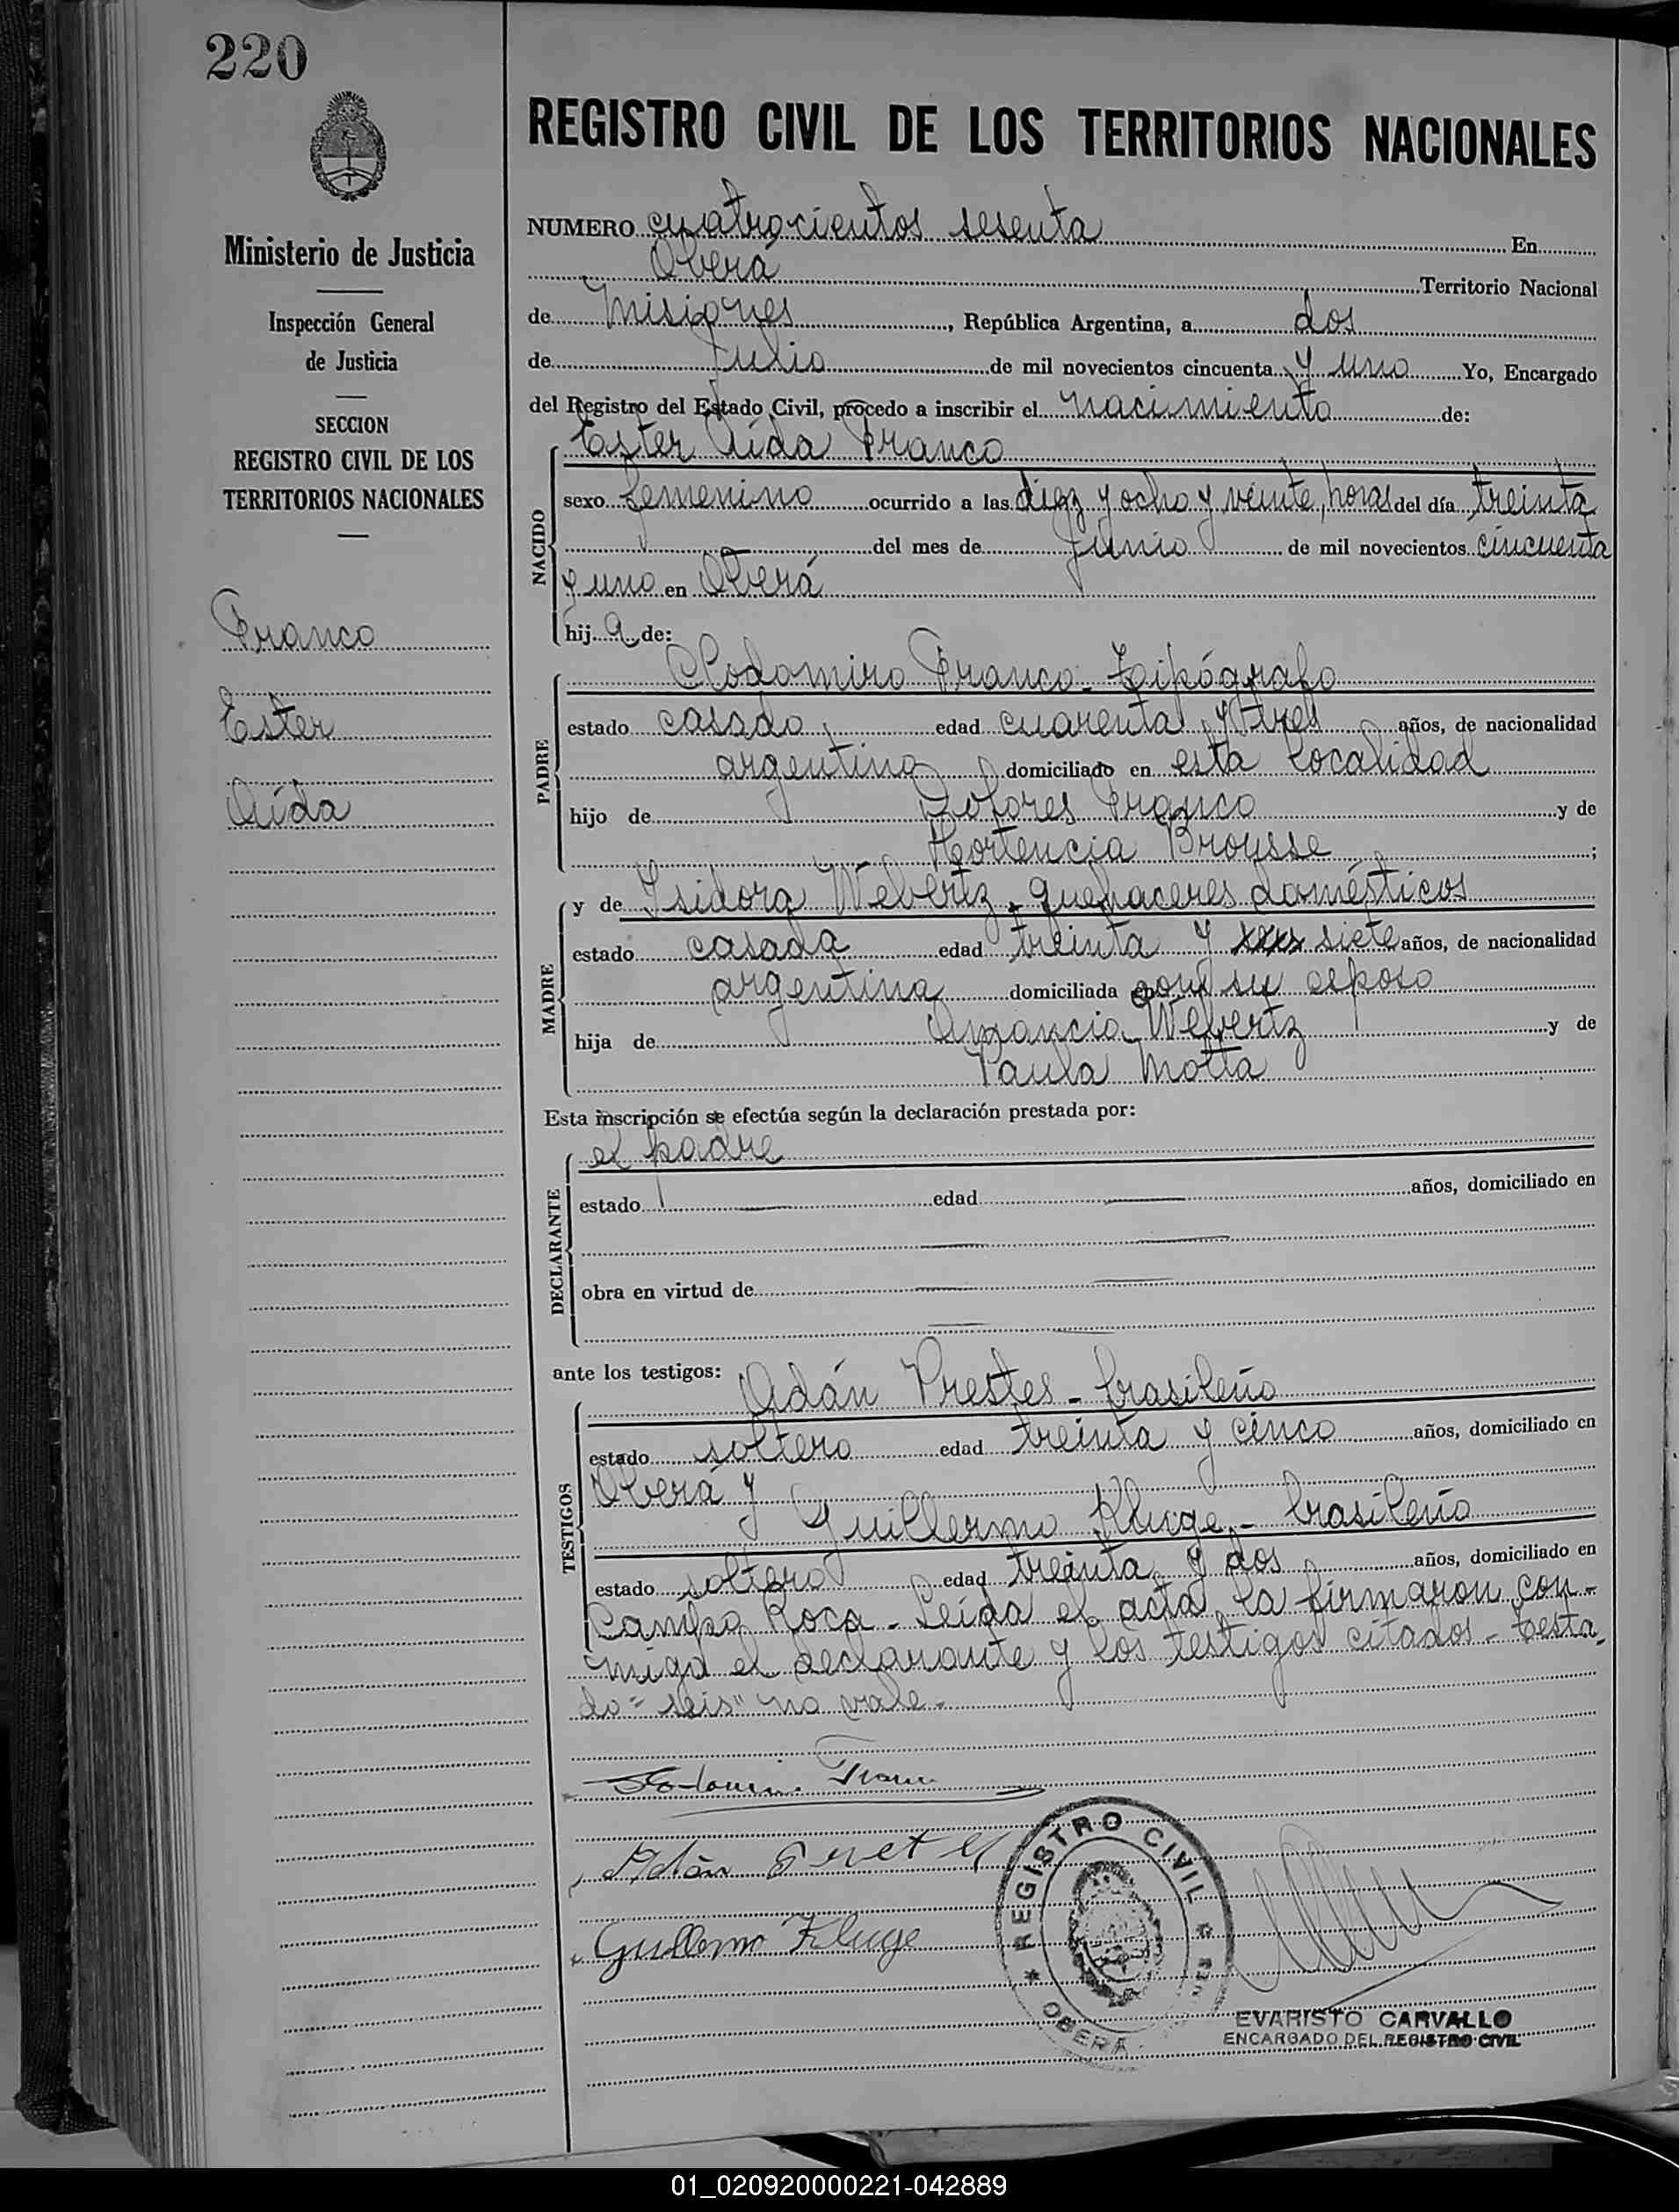 220
Ministerio de Justicia
Inspección General
de Justicia
SECCION
REGISTRO CIVIL DE LOS
TERRITORIOS NACIONALES
Franco
Ester
Aída
REGISTRO CIVIL DE LOS TERRITORIOS NACIONALES
NUMERO cuatrocientos sesenta En
Oberá Territorio Nacional
de Misiones, República Argentina, a dos
de Julio de mil novecientos cincuenta y uno Yo, Encargado
del Registro del Estado Civil, procedo a inscribir el nacimiento de:
Ester Aída Franco
NACIDO
sexo femenino ocurrido a las diez y ocho y veinte, horas del día treinta
del mes de Junio de mil novecientos cincuenta
y uno en Oberá
hij a de:
PADRE
Clodomiro Franco - tipógrafo
estado casado edad cuarenta y tres años, de nacionalidad
argentino domiciliado en esta localidad
hijo de Dolores Franco y de
Hortencia Brousse;
MADRE
y de Isidora Webertz - quehaceres domésticos
estado casada edad treinta y xxxx siete años, de nacionalidad
argentina domiciliada con su esposo
hija de Amancio Webertz y de
Paula Motta
Esta inscripción se efectúa según la declaración prestada por:
DECLARANTE
el padre
estado edad años, domiciliado en
obra en virtud de
ante los testigos:
TESTIGOS
Adán Prestes - brasileño
estado soltero edad treinta y cinco años, domiciliado en
Oberá y
Guillermo Kluge - brasileño
estado soltero edad treinta y dos años, domiciliado en
Campo Roca - Leída el acta, la firmaron con-
migo el declarante y los testigos citados - Testa-
do "seis" no vale.
Clodomiro Franco
Adán Prestes
Guillermo Kluge
REGISTRO CIVIL
OBERÁ
EVARISTO CARVALLO
ENCARGADO DEL REGISTRO CIVIL
01_020920000221-042889